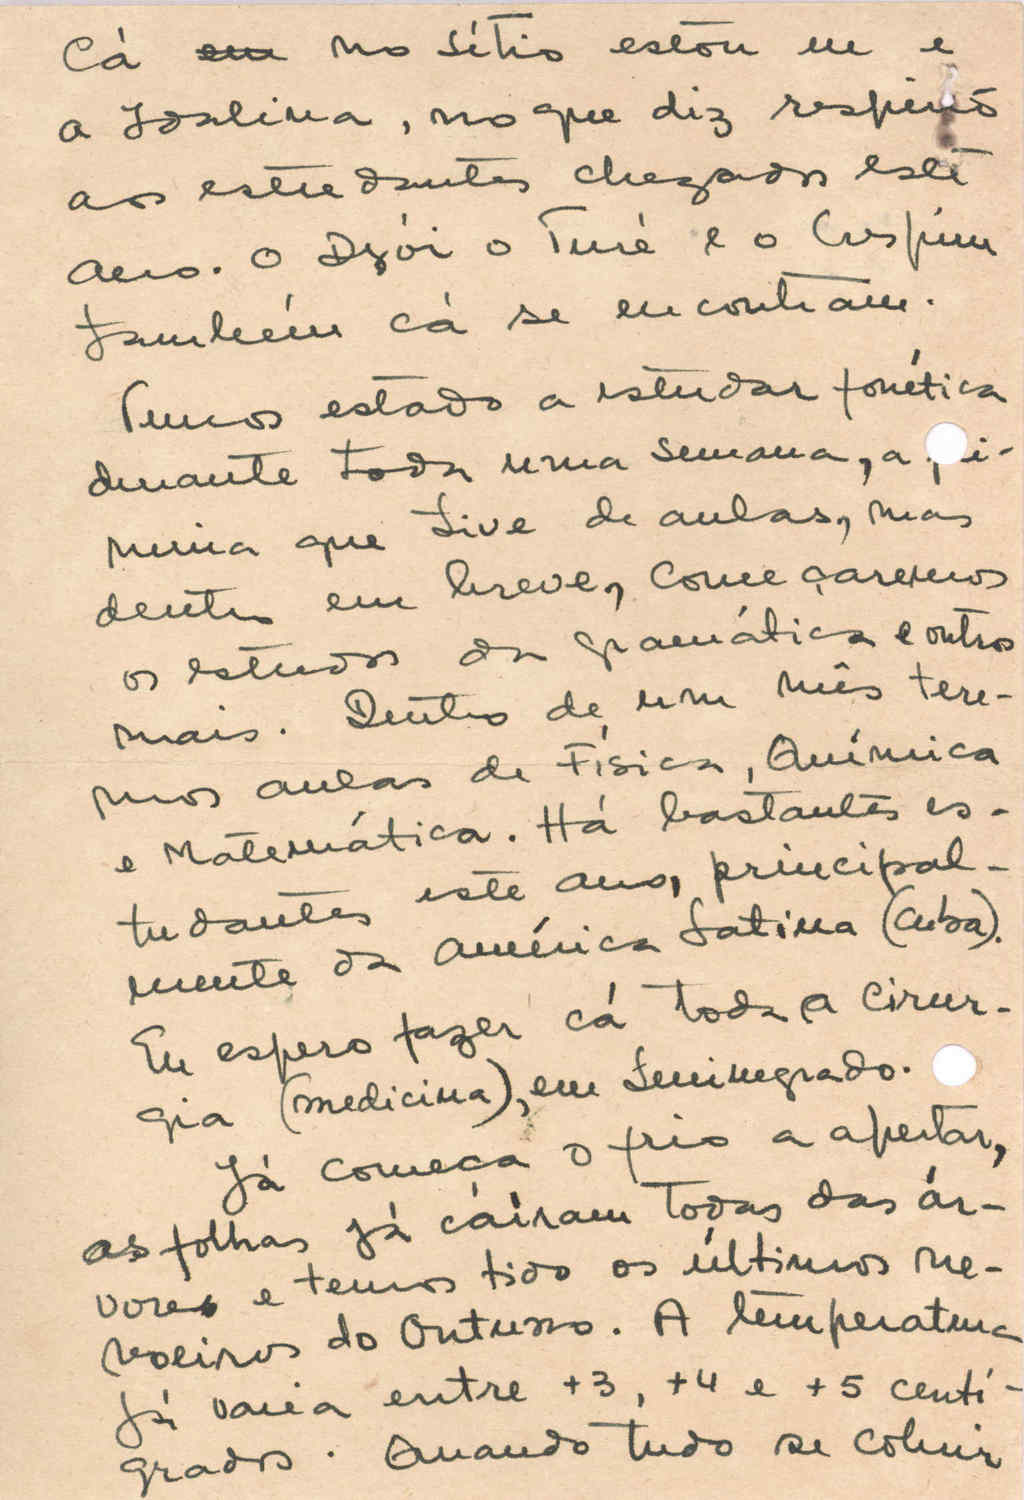 Cá em no sítio estou eu e
a Idalina, no que diz respeito
aos estudantes chegados este
ano. O Dgói o Turé e o Crispim
também cá se encontram.
Temos estado a estudar fonética
durante toda uma semana, a pri-
meira que tive de aulas, mas
dentro em breve, começaremos
os estudos da gramática e outros
mais. Dentro de um mês tere-
mos aulas de Física, Química
e Matemática. Há bastantes es-
tudantes este ano, principal-
mente da América Latina (Cuba).
Eu espero fazer cá toda a cirur-
gia (medicina), em Leninegrado.
Já começa o frio a apertar,
as folhas já caíram todas das ár-
vores e temos tido os últimos ne-
voeiros do Outuno. A temperatura
já varia entre +3, +4 e +5 centí-
grados. Quando tudo se cobrir